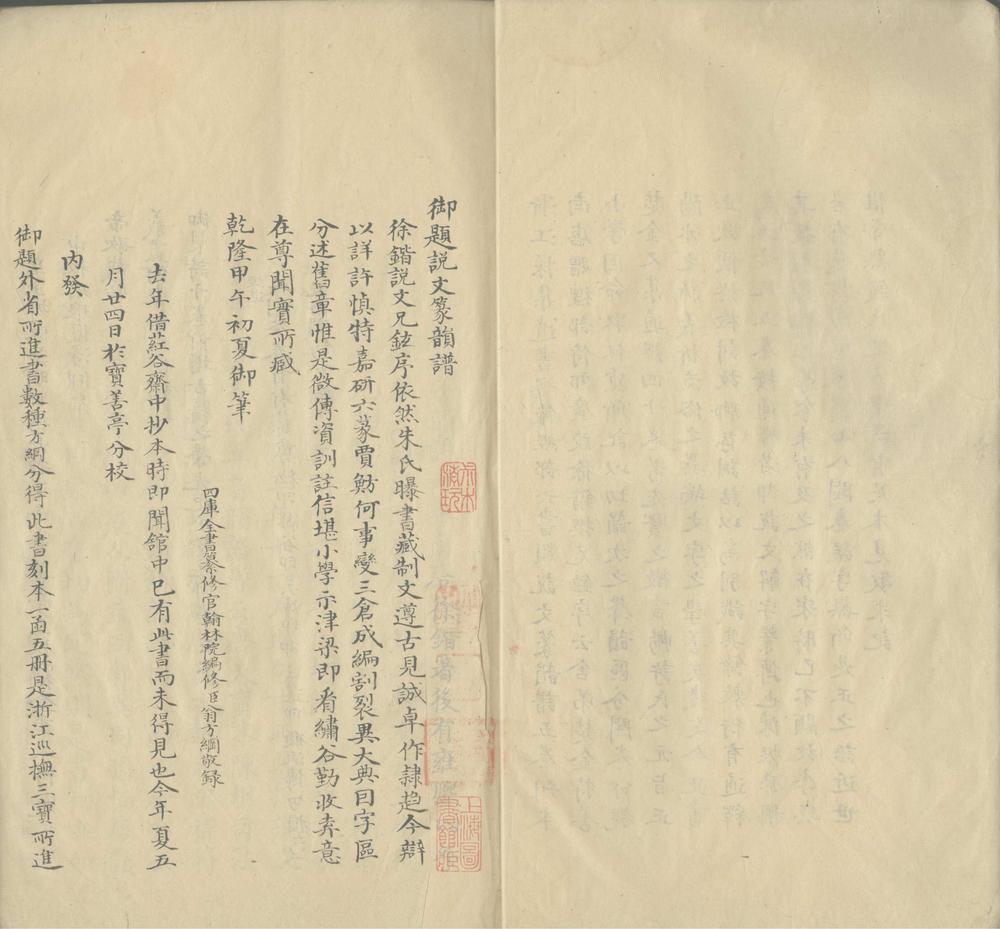 御題說文篆韻譜
徐鍇說文兄鉉序依然朱氏曝書藏制文遵古見誠卓作隸趋今辯
以詳許慎特嘉研六篆賈魴何事變三倉成編割裂異大典曰字區
分述舊章惟是微傳資訓註信堪小學示津梁即看繡谷勤收弆意
在尊聞實所臧
乾隆甲午初夏御筆
四庫全書纂修官翰林院編修臣翁方綱敬録
去年借葒谷齋中抄本時即聞館中已有此書而未得見也今年夏五
月廿四日於寶善亭分校
内發
御題外省所進書數種方綱分得此書刻本一函五冊是浙江巡撫三寶所進